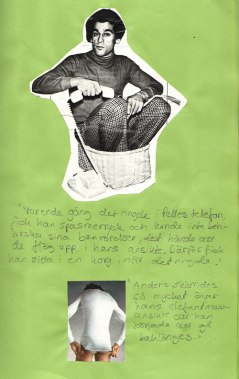 "Varenda gång det ringde i Pelles telefon,
fick han spasmerryck och kunde inte be-
härska sina benrörelser, det hände att
de flög upp i hans ansikte. Därför fick
han sitta i en korg, när det ringde."
"Anders skämdes
så mycket över
hans elefantman-
ansikte att han
började att gå
baklänges."